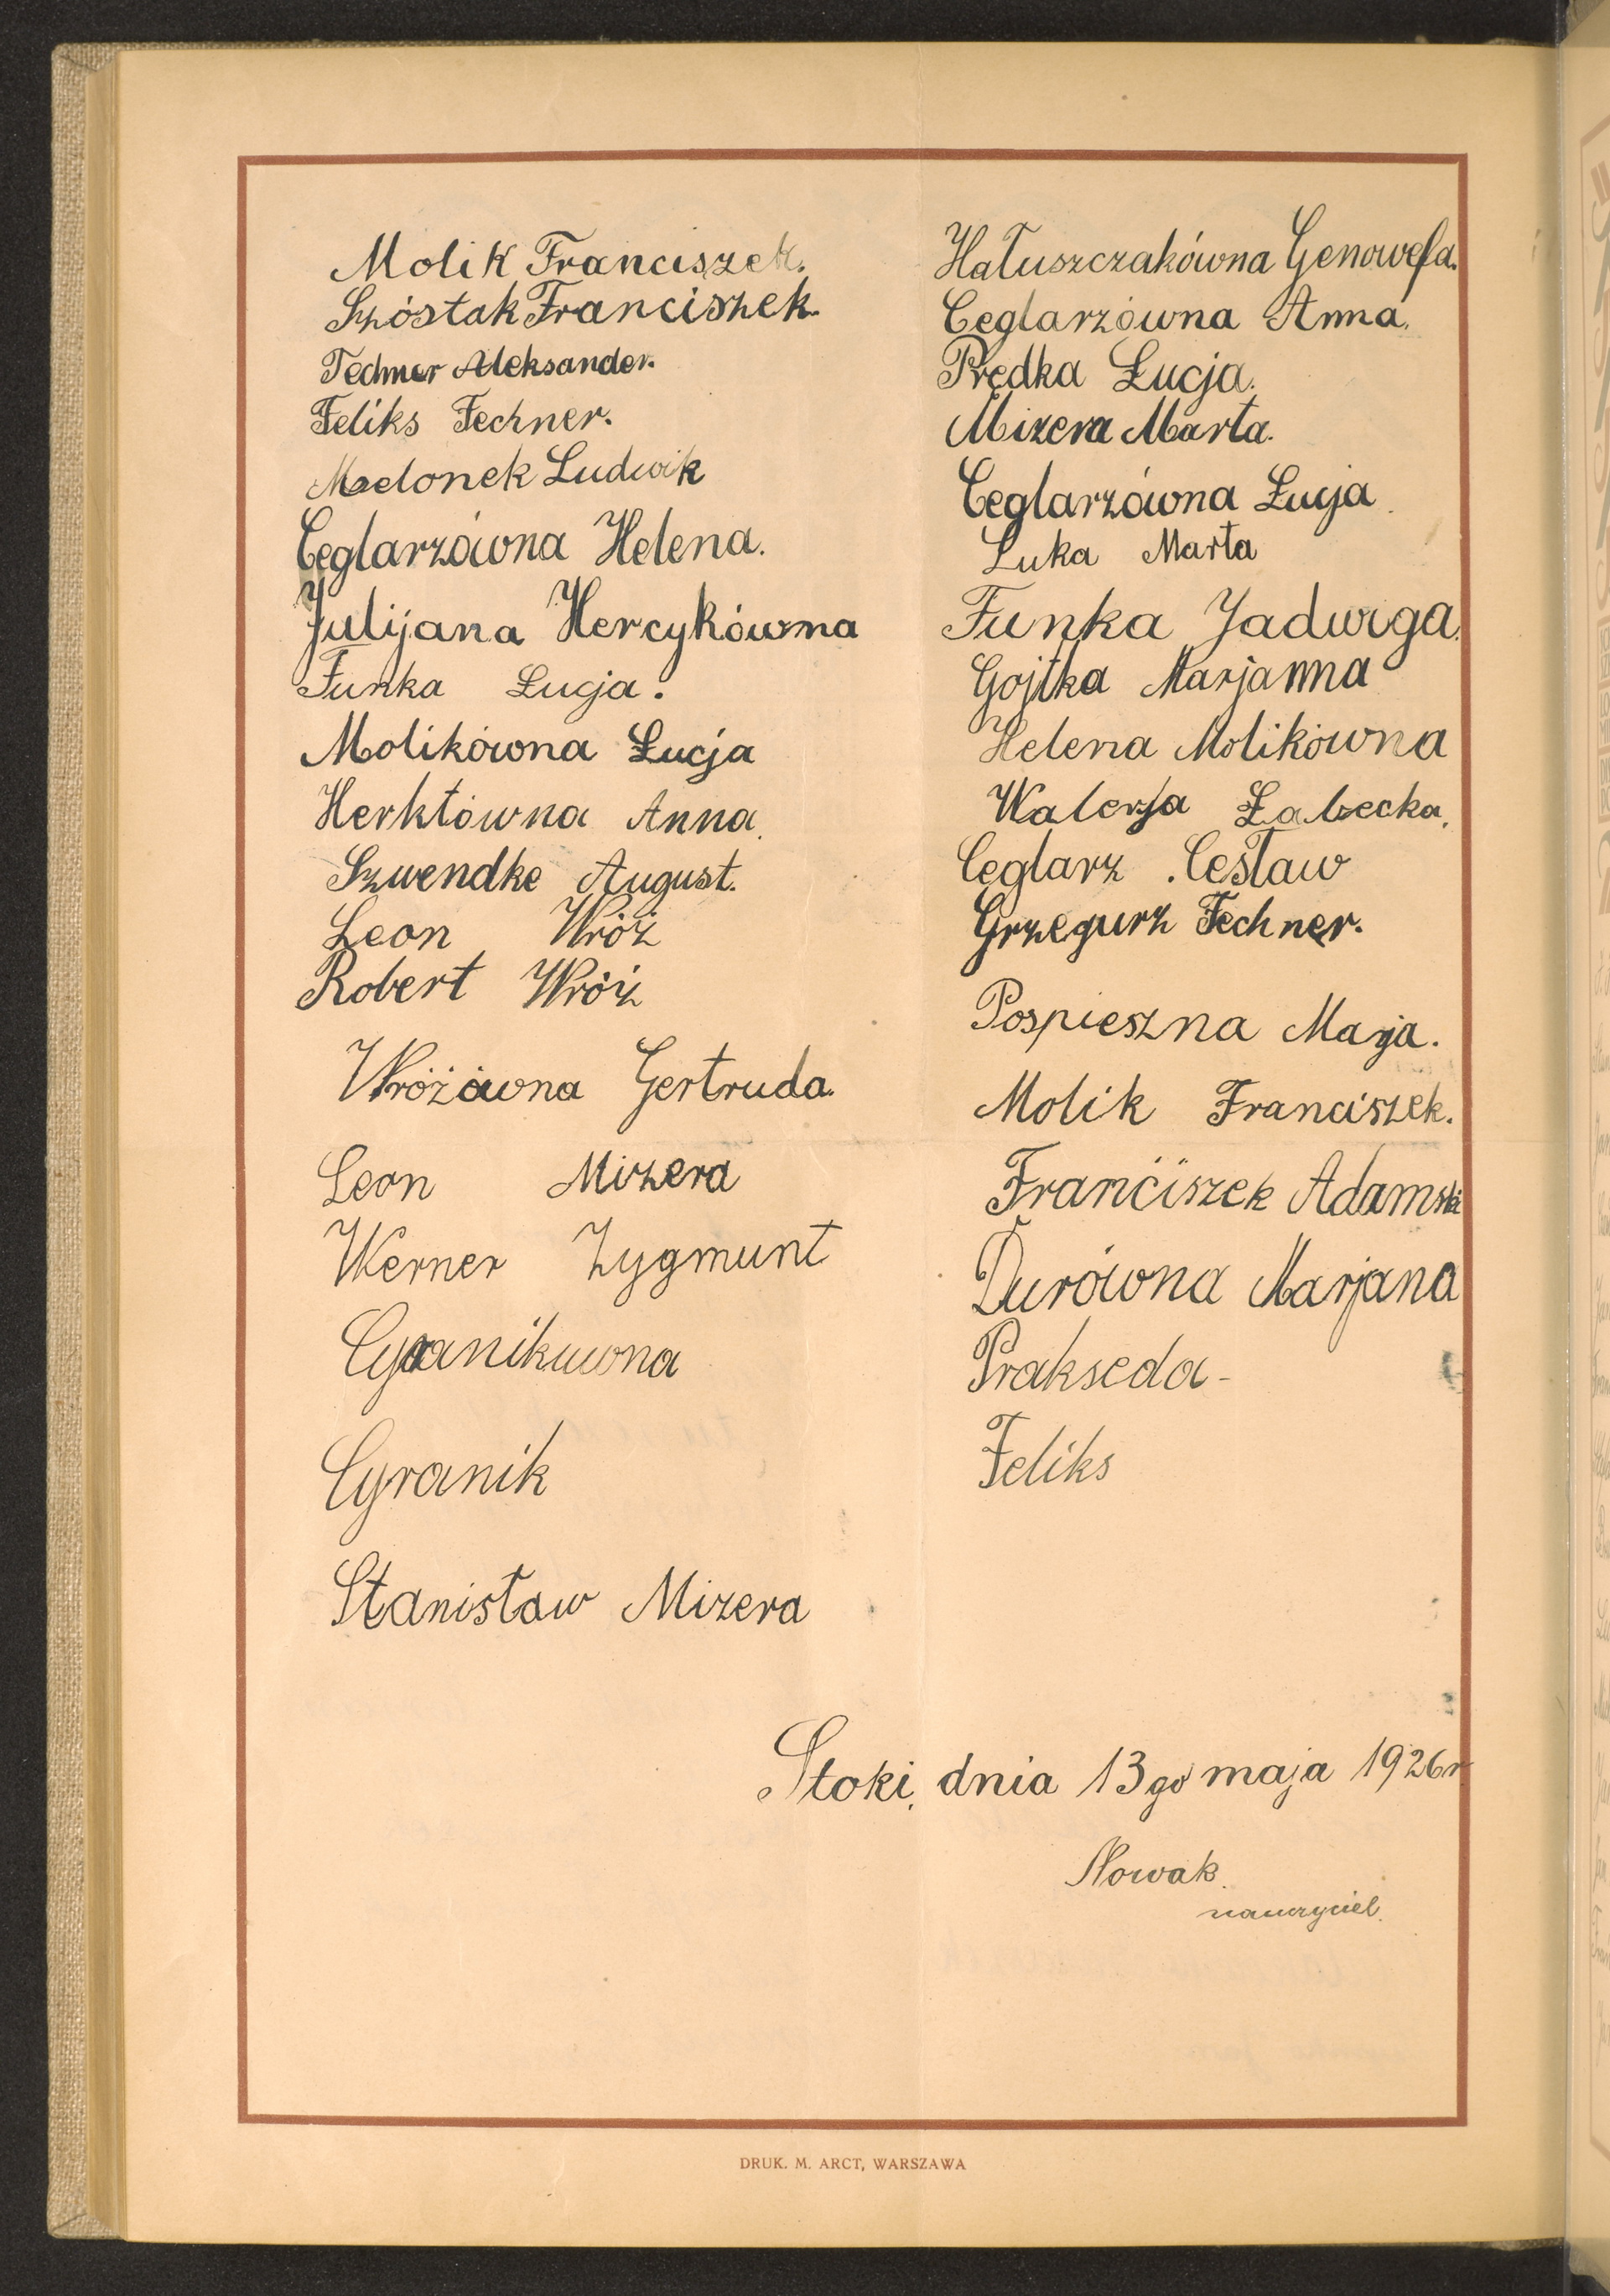 Molik Franciszek.
Szóstak Franciszek.
Techner Aleksander.
Feliks Fechner.
Medonek Ludwik
Ceglarzówna Helena.
Julijana Hercykówna
Funka Łucja.
Molikówna Łucja
Herktówna Anna.
Szwendke August.
Leon Wróż
Robert Wróż
Wróżówna Gertruda.
Leon Mizera
Werner Zygmunt
Cyranikuwna
Cyranik
Stanisław Mizera
Hałuszczakówna Genowefa.
Ceglarzówna Anna.
Prędka Łucja.
Mizera Marta.
Ceglarzówna Łucja.
Luka Marta
Funka Jadwiga.
Gojtka Marjanna
Helena Molikówna
Walerja Łabecka.
Ceglarz Cesław
Grzegurz Fechner.
Pospieszna Marja.
Molik Franciszek.
Franciszek Adamski
Durówna Marjana
Prakseda-
Feliks
Stoki, dnia 13go maja 1926r
Nowak.
nauczyciel.
DRUK. M. ARCT, WARSZAWA